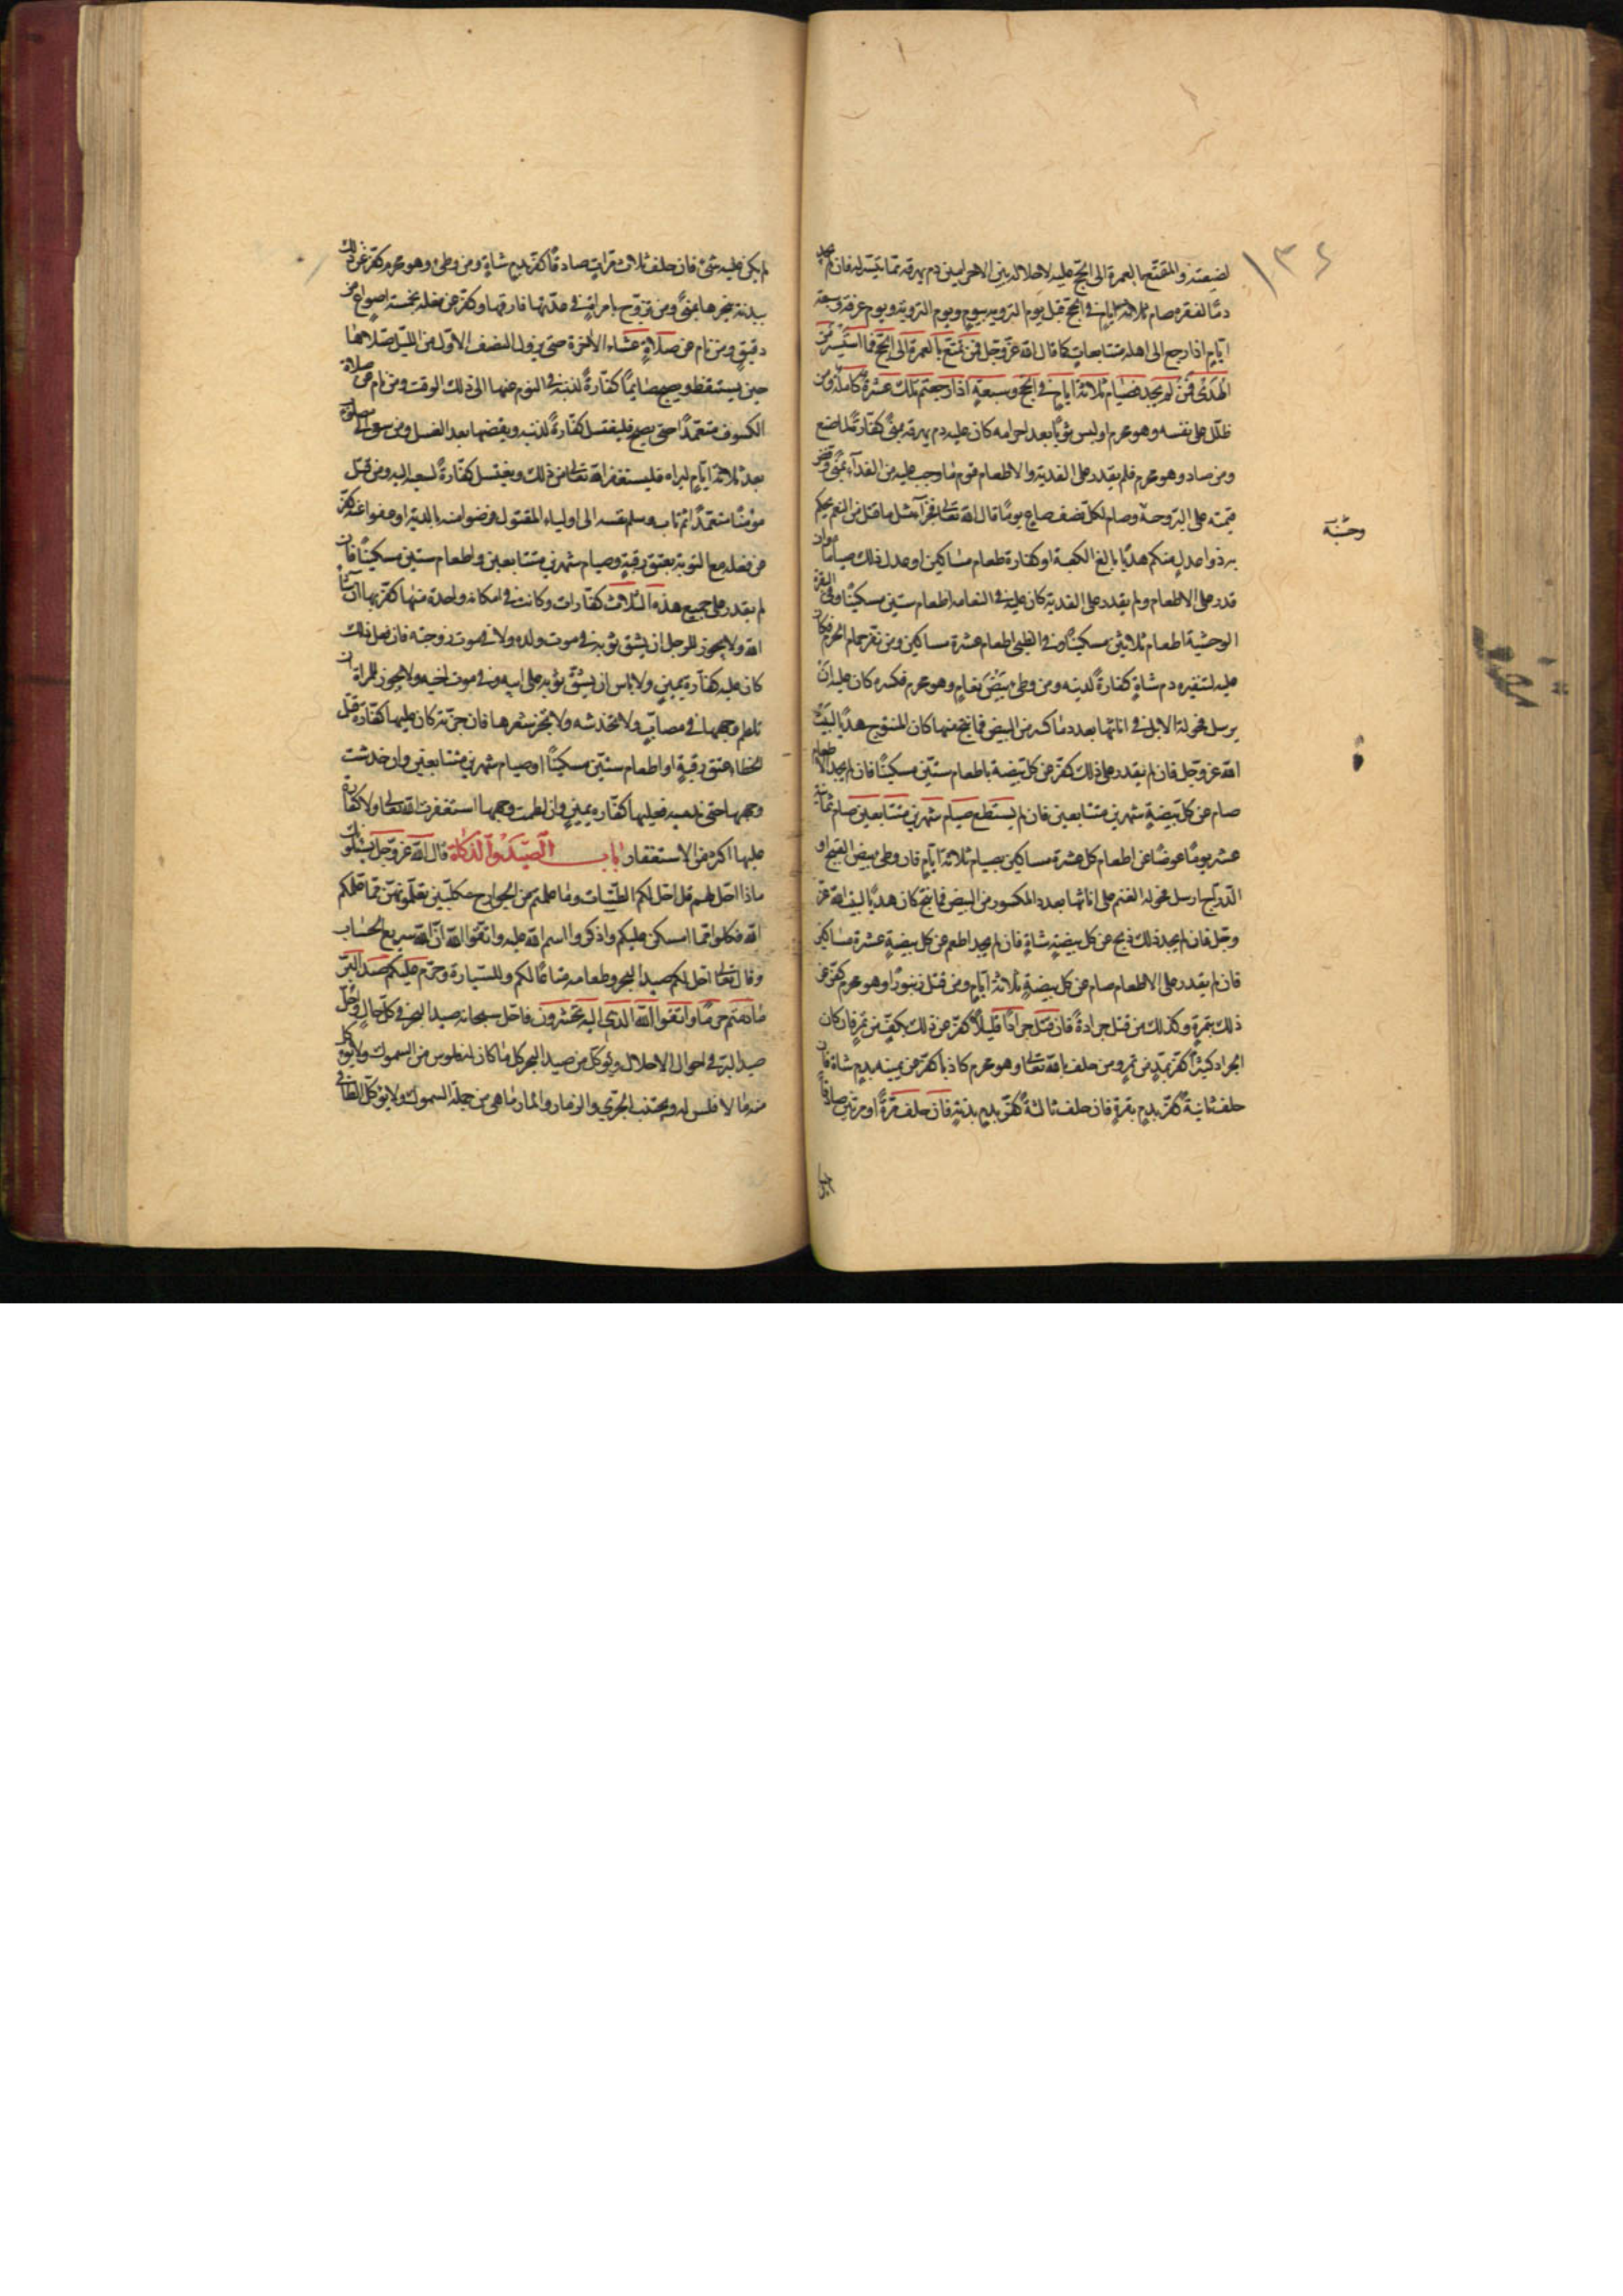 ١٣٤
لضيعته والمتمتع بالعمرة الى الحج عليه لاحلاله بين الاحرامين دم يهرقه مما تيسر له فان لم يجد
دما لفقره صام ثلاثة ايام في الحج قبل يوم التروية بيوم ويوم التروية ويوم عرفة وسبعة
ايام اذا رجع الى اهله متتابعات كما قال الله عز وجل فمن تمتع بالعمرة الى الحج فما استيسر من
الهدى فمن لم يجد فصيام ثلاثة ايام في الحج وسبعة اذا رجعتم تلك عشرة كاملة ومن
ظلل على نفسه وهو محرم او لبس ثوبا بعد احرامه كان عليه دم يهرقه بمنى كفارة لما صنع
ومن صاد وهو محرم فلم يقدر على الفدية والاطعام قوم ما وجب عليه من الفداء بمنى وفض
قيمته على البر وصام لكل نصف صاع يوما قال الله تعالى فجزآء مثل ما قتل من النعم يحكم
وحنبة
به ذوا عدل منكم هديا بالغ الكعبة او كفارة طعام مساكين او عدل ذلك صياما وان
قدر على الاطعام ولم يقدر على الفدية كان عليه في النعامة اطعام ستين مسكينا وفي البقرة
الوحشية اطعام ثلاثين مسكينا وفي الظبى اطعام عشرة مساكين ومن نفر حمام الحرم فكان
عليه لتنفيره دم شاة كفارة لذنبه ومن وطى بيض نعام وهو محرم فكسره كان عليه ان
يرسل فحولة الابل في اناثها بعدد ما كسر من البيض فما نتج منها كان المنتوج هديا لبيت
الله عز وجل فان لم يقدر على ذلك كفر عن كل بيضة باطعام ستين مسكينا فان لم يجد الاطعام
صام عن كل بيضة شهرين متتابعين فان لم يستطع صيام شهرين متتابعين صام ثمانية
عشر يوما عوضا عن اطعام كل عشرة مساكين بصيام ثلاثة ايام فان وطى بيض القبج او
الدراج ارسل فحولة الغنم على اناثها بعدد المكسور من البيض فما نتج كان هديا لبيت الله عز
وجل فان لم يجد ذلك ذبح عن كل بيضة شاة فان لم يجد اطعم عن كل بيضة عشرة مساكين
فان لم يقدر على الاطعام صام عن كل بيضة ثلاثة ايام ومن قتل زنبورا وهو محرم كفر عن
ذلك بتمرة وكذلك من قتل جرادة فان قتل جرادا قليلا كفر عن ذلك بكف من تمر فان كان
الجراد كثيرا كفر بمد من تمر ومن حلف بالله تعالى وهو محرم كاذبا كفر عن يمينه بدم شاة فان
حلف ثانية كفر بدم بقرة فان حلف ثالثة كفر بدم بدنة فان حلف مرة او مرتين صادقا
لم يكن عليه شئ فان حلف ثلاث مرات صادقا كفر بدم شاة ومن وطى وهو محرم كفر عن ذلك
ببدنة ينحرها بمنى ومن تزوج بامراة في عدتها فارقها وكفر عن فعله بخمسة اصواع من
دقيق ومن نام عن صلاة عشاء الاخرة حتى يزول النصف الاول من الليل صلاها
حين يستيقظ ويصبح صايما كفارة لذنبه في النوم عنها الى ذلك الوقت ومن نام عن صلاة
الكسوف متعمدا حتى يصبح فليغتسل كفارة لذنبه ويقضيها بعد الغسل ومن سعى الى مصلوب
بعد ثلاثة ايام ليراه فليستغفر الله تعالى من ذلك ويغتسل كفارة لسعيه اليه ومن قتل
مومنا متعمدا ثم تاب وسلم نفسه الى اولياء المقتول فرضوا منه بالدية او عفوا عنه كفر
عن فعله مع التوبة بعتق رقبة وصيام شهرين متتابعين واطعام ستين مسكينا فان
لم يقدر على جميع هذه الثلاث كفارات وكانت في امكانه واحدة منها كفر بها ان شا
الله ولا يجوز للرجل ان يشق ثوبه في موت ولده ولا في موت زوجته فان فعل ذلك
كان عليه كفارة يمين ولا باس ان يشق ثوبه على ابيه وفي موت اخيه ولا يجوز للمراة ان
تلطم وجهها في مصاب ولا تخدشه ولا تجز شعرها فان جزته كان عليها كفارة قتل
الخطاء عتق رقبة او اطعام ستين مسكينا او صيام شهرين متتابعين وان خدشت
وجهها حتى تدميه فعليها كفارة يمين وان لطمت وجهها استغفرت الله تعالى ولا كفارة
عليها اكثر من الاستغفار باب الصيد والذكاة قال الله عز وجل يسئلونك
ماذا احل لهم قل احل لكم الطيبات وما علمتم من الجوارح مكلبين تعلمونهن مما علمكم
الله فكلوا مما امسكن عليكم واذكروا اسم الله عليه واتقوا الله ان الله سريع الحساب
وقال تعالى احل لكم صيد البحر وطعامه متاعا لكم وللسيارة وحرم عليكم صيد البر
ما دمتم حرما واتقوا الله الذي اليه تحشرون فاحل سبحانه صيد البحر في كل حال واحل
صيد البر في احوال الاحلال ويوكل من صيد البحر كل ما كان له فلوس من السموك ولا يوكل
منه ما لا فلس له ويجتنب الجري والزمار والمارماهى من جملة السموك ولا يوكل الطافي